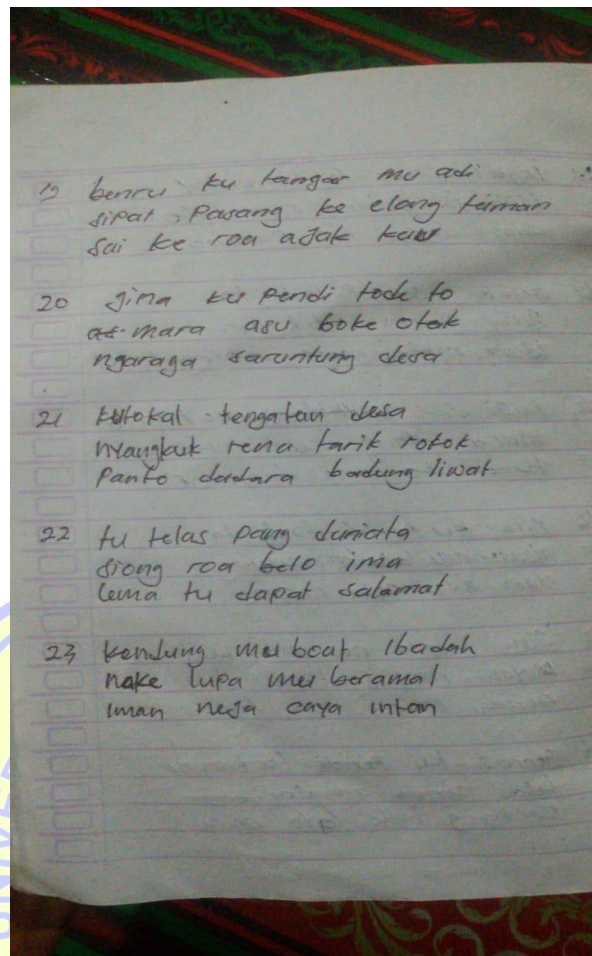 19 benru ku tangar mu adi
sipat Pasang ke elong teman
sai ke roa ajak kau
20 jina ku pendi tode to
as-mara asu boke otak
ngaraga saruntung desa
21 kutokal tengatan desa
nyangkuk rena tarik rokok
Panto dadara badung liwat
22 tu telas pang duniata
siong roa belo ima
lema tu dapat salamat
23 kendung mu boat Ibadah
nake lupa mu beramal
iman neja caya intan